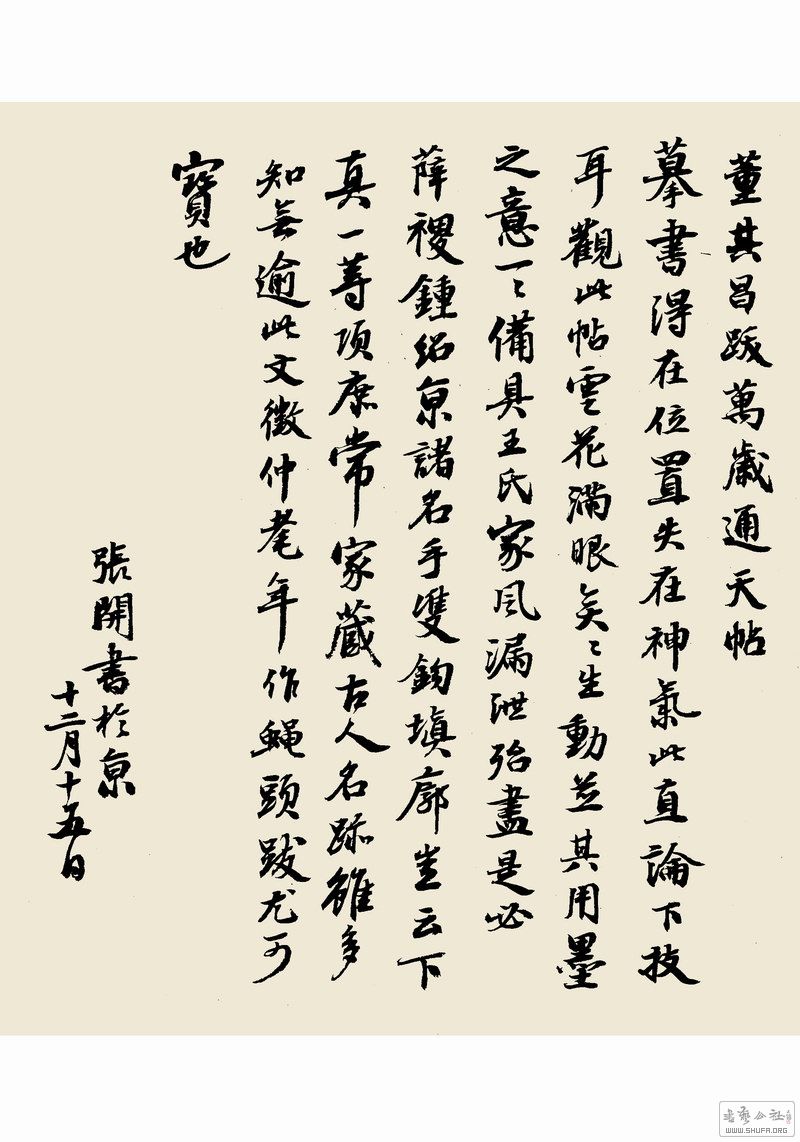 董其昌跋萬歲通天帖
摹書得在位置失在神氣此直論下技
耳觀此帖雲花滿眼矣〻生動並其用墨
之意一〻備具王氏家風漏泄殆盡是必
薛稷鍾紹京諸名手雙鉤填廓豈云下
真一等項庶常家藏古人名跡雖多
知無逾此文徵仲耄年作蠅頭跋尤可
寶也
張開書於京
十二月十五日
書藝公社
WWW.SHUFA.ORG